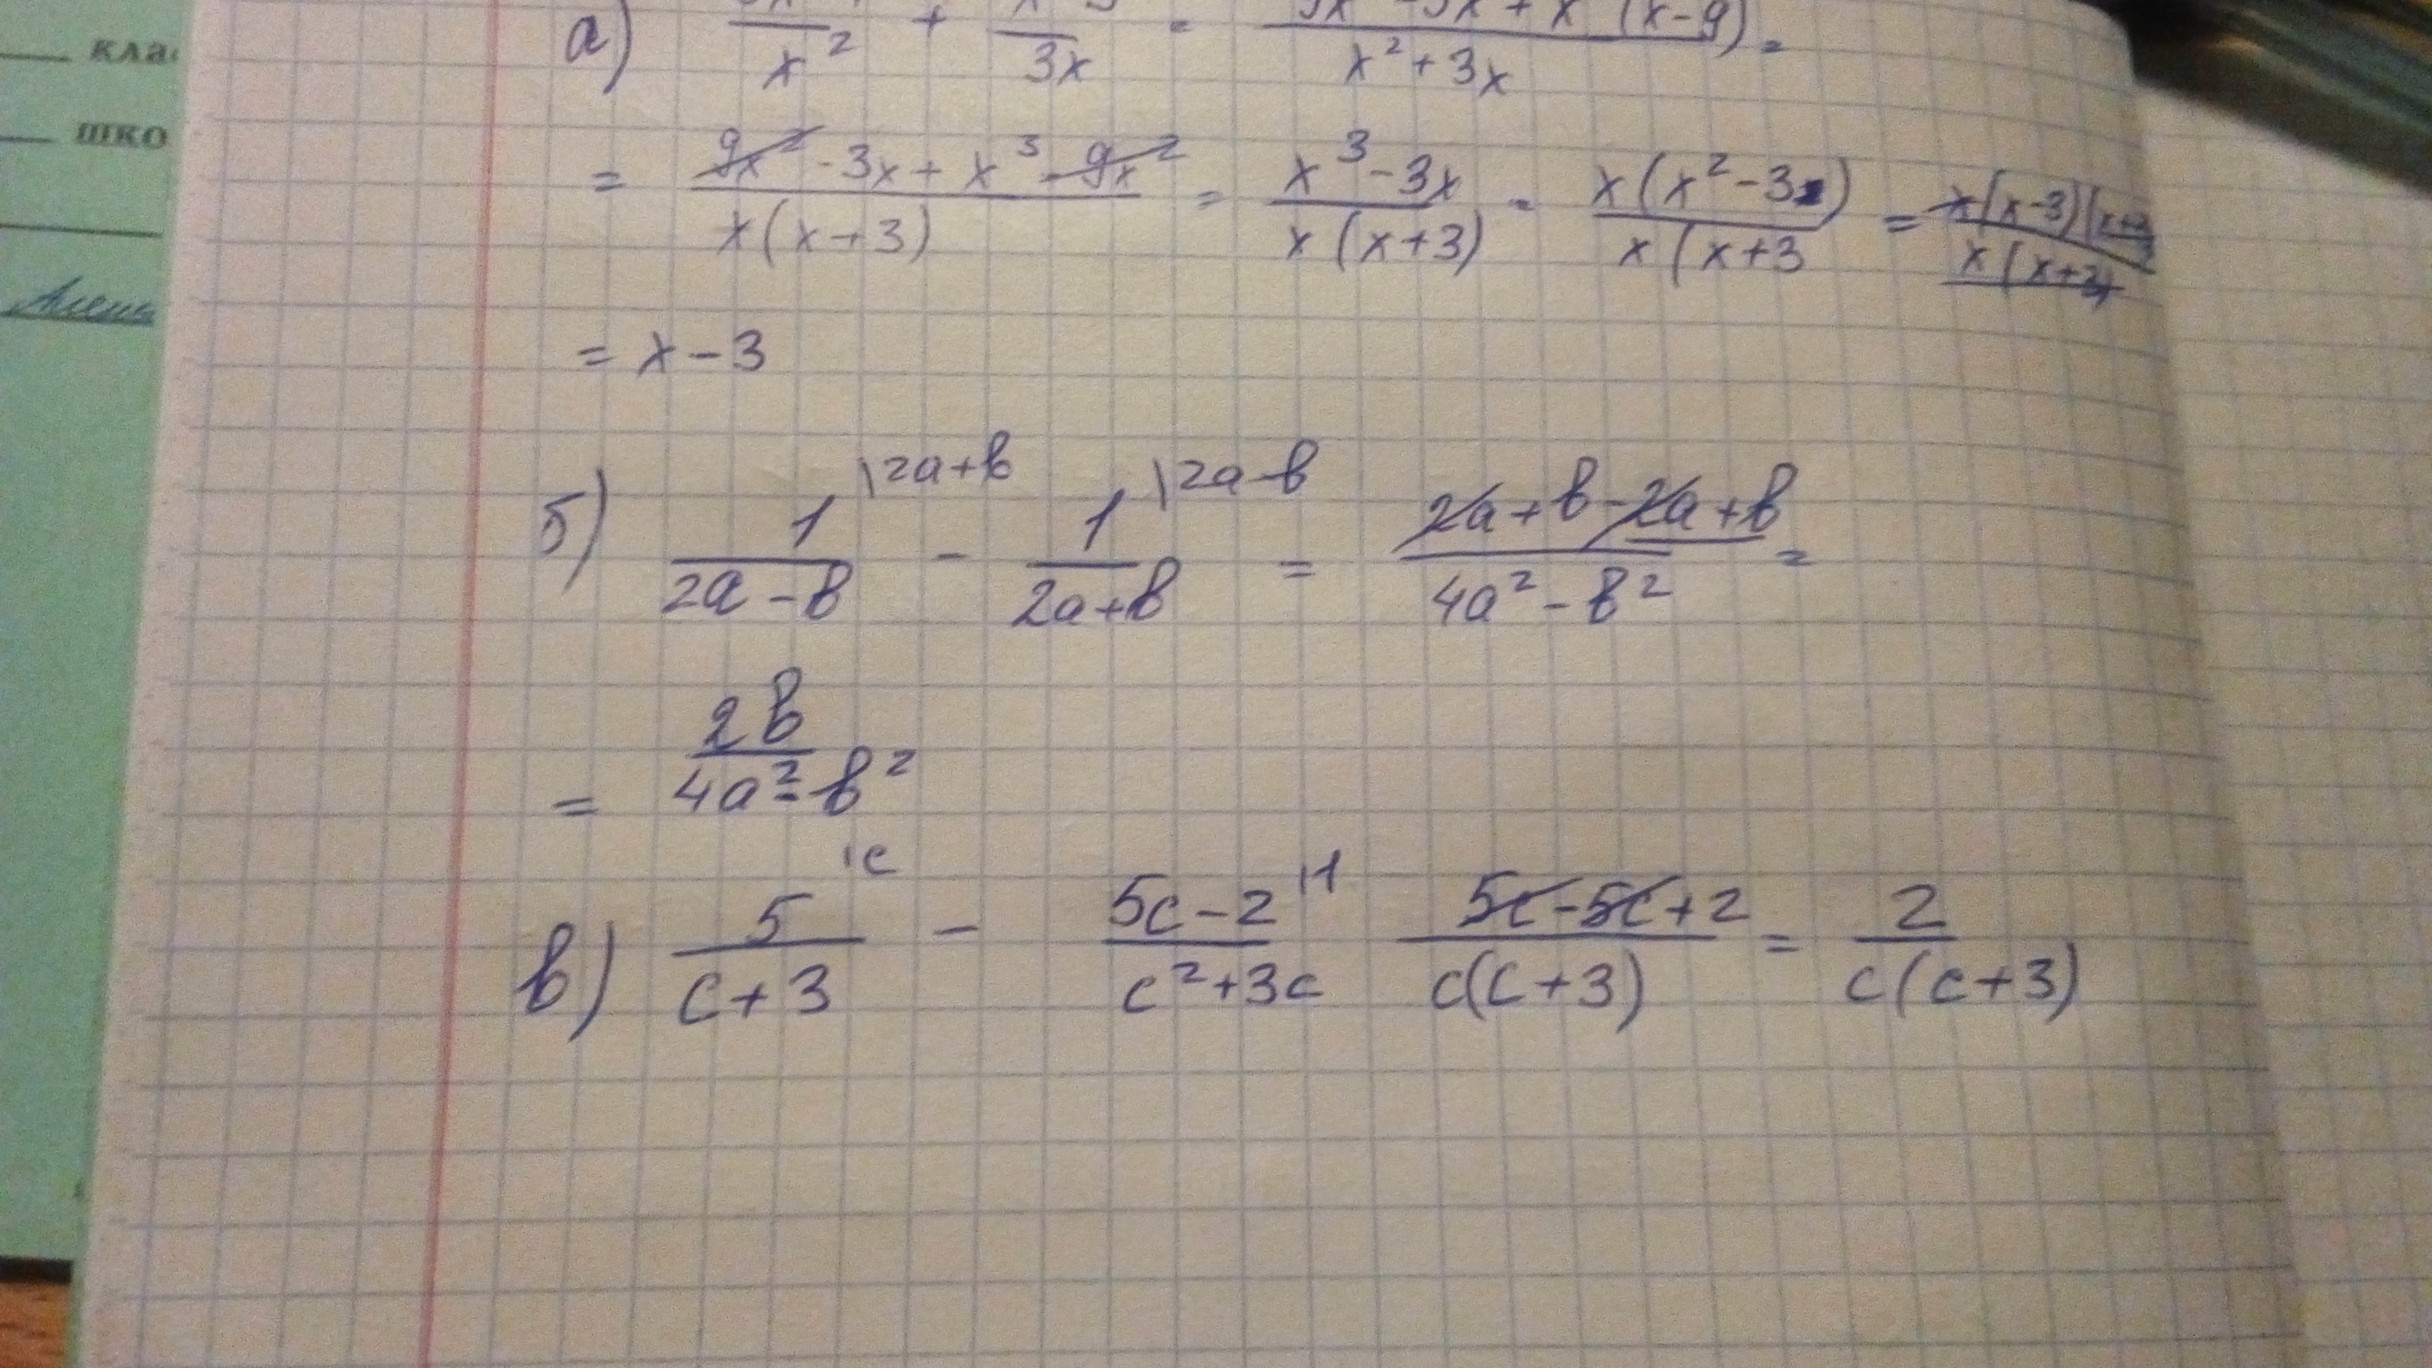 клас
шко
а) x² + 3x = (x-9) =
x² + 3x
= 9x² - 3x + x³ - 9x² / x(x+3) = x³ - 3x / x(x+3) = x(x² - 3) / x(x+3 = x(x-3)(x+3 / x(x+3)
= x - 3
б) 1 \2a+b / 2a-b - 1 \2a-b / 2a+b = 2a+b-2a+b / 4a²-b² =
= 2b / 4a²-b²
в) 5 \c / c+3 - 5c-2 \1 / c²+3c 5c-5c+2 / c(c+3) = 2 / c(c+3)